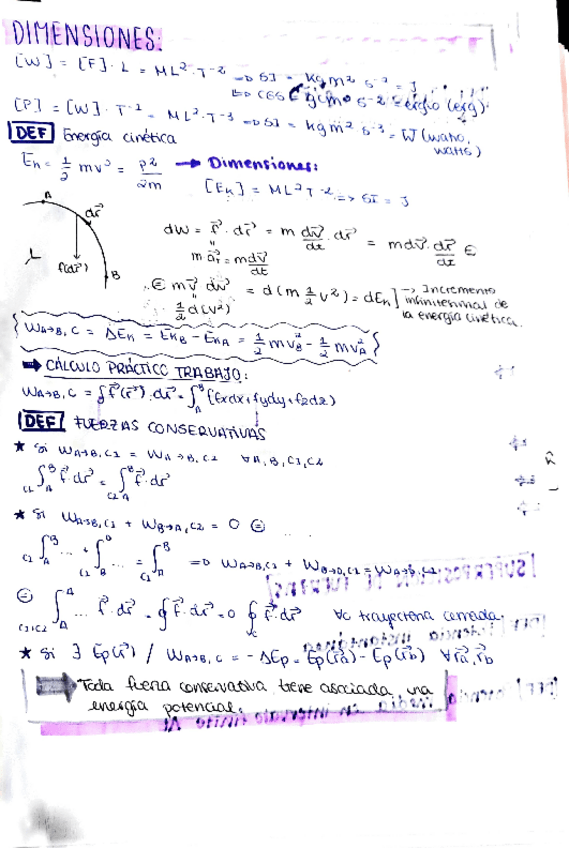 DIMENSIONES:
[W] = [F] · L = ML² · T⁻² ⇒ SI = Kg m² s⁻² = J
⇒ CGS = g cm² s⁻² = ergio (erg)
[P] = [W] · T⁻¹ = ML² · T⁻³ ⇒ SI = Kg m² s⁻³ = W (watio, watts)
DEF Energía cinética
Ek = 1/2 mv² = p²/2m → Dimensiones:
[Ek] = ML²T⁻² ⇒ SI = J
A
dr⃗
f(dr⃗)
B
dW = f⃗ · dr⃗ = m dv⃗/dt · dr⃗ = m dv⃗ · dr⃗/dt =
m a⃗ = m dv⃗/dt
= m v⃗ dv⃗ = d(m 1/2 v²) = dEk] → Incremento infinitesimal de la energía cinética.
1/2 d(v²)
{ W A→B, C = ΔEk = EkB - EkA = 1/2 mv²B - 1/2 mv²A }
➡ CÁLCULO PRÁCTICO TRABAJO:
W A→B, C = ∫ f⃗(r⃗) · dr⃗ = ∫_A^B [fxdx + fydy + fzdz)
DEF FUERZAS CONSERVATIVAS
★ Si W A→B, C1 = W A→B, C2 ∀A, B, C1, C2
C1 ∫_A^B f⃗ · dr⃗ = C2 ∫_A^B f⃗ · dr⃗
★ Si W A→B, C1 + W B→A, C2 = 0 ⊜
⊜ C1+C2 ∫_A^A ... f⃗ · dr⃗ = ∮ f⃗ · dr⃗ = 0 ∮_C f⃗ · dr⃗ ∀C trayectoria cerrada.
★ Si ∃ Ep(r⃗) / W A→B, C = -ΔEp = Ep(r⃗a) - Ep(r⃗b) ∀r⃗a, r⃗b
➡ Toda fuerza conservativa tiene asociada una
energía potencial.